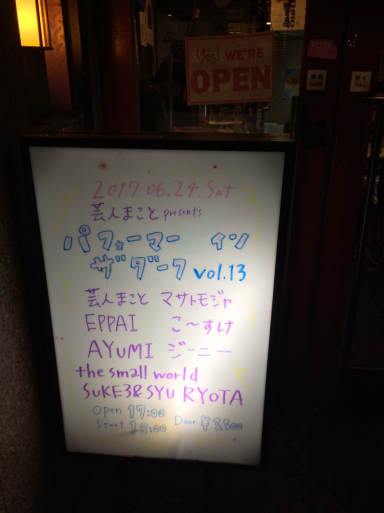 Yes! WE'RE
OPEN
2017.06.24.Sat
芸人まこと presents
パフォーマー イン
ザ ダーク vol.13
芸人まこと マサトモジャ
EPPAI こ〜すけ
AYUMI ジーニー
the small world
SUKE3&SYU RYOTA
Open 17:00
Start 18:00 Door